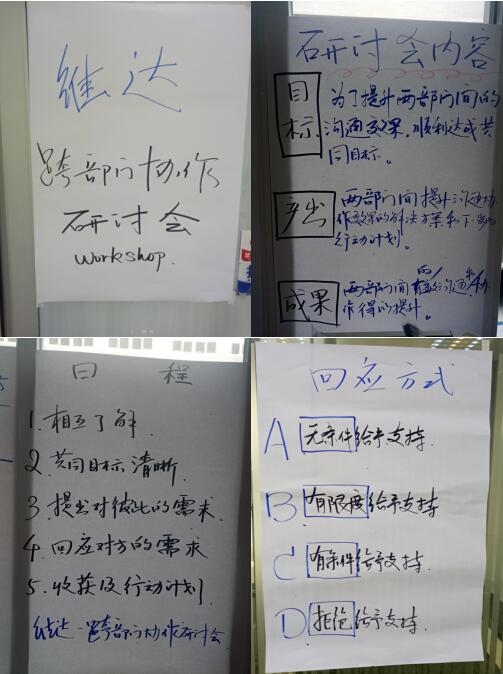 继达
跨部门协作
研讨会
workshop.
研讨会内容
目标
为了提升两部门间的
沟通效果，顺利达成共
同目标。
产出
两部门间提升沟通协
作效果的解决方案和下一步的
行动计划。
成果
两部门间的有效沟通和协
作得的提升。
日 程
1. 相互了解
2. 共同目标清晰
3. 提出对彼此的需求
4. 回应对方的需求
5. 收获及行动计划
继达-跨部门协作研讨会
回应方式
A 无条件给予支持.
B 有限度给予支持
C 有条件给予支持.
D 拒绝给予支持.